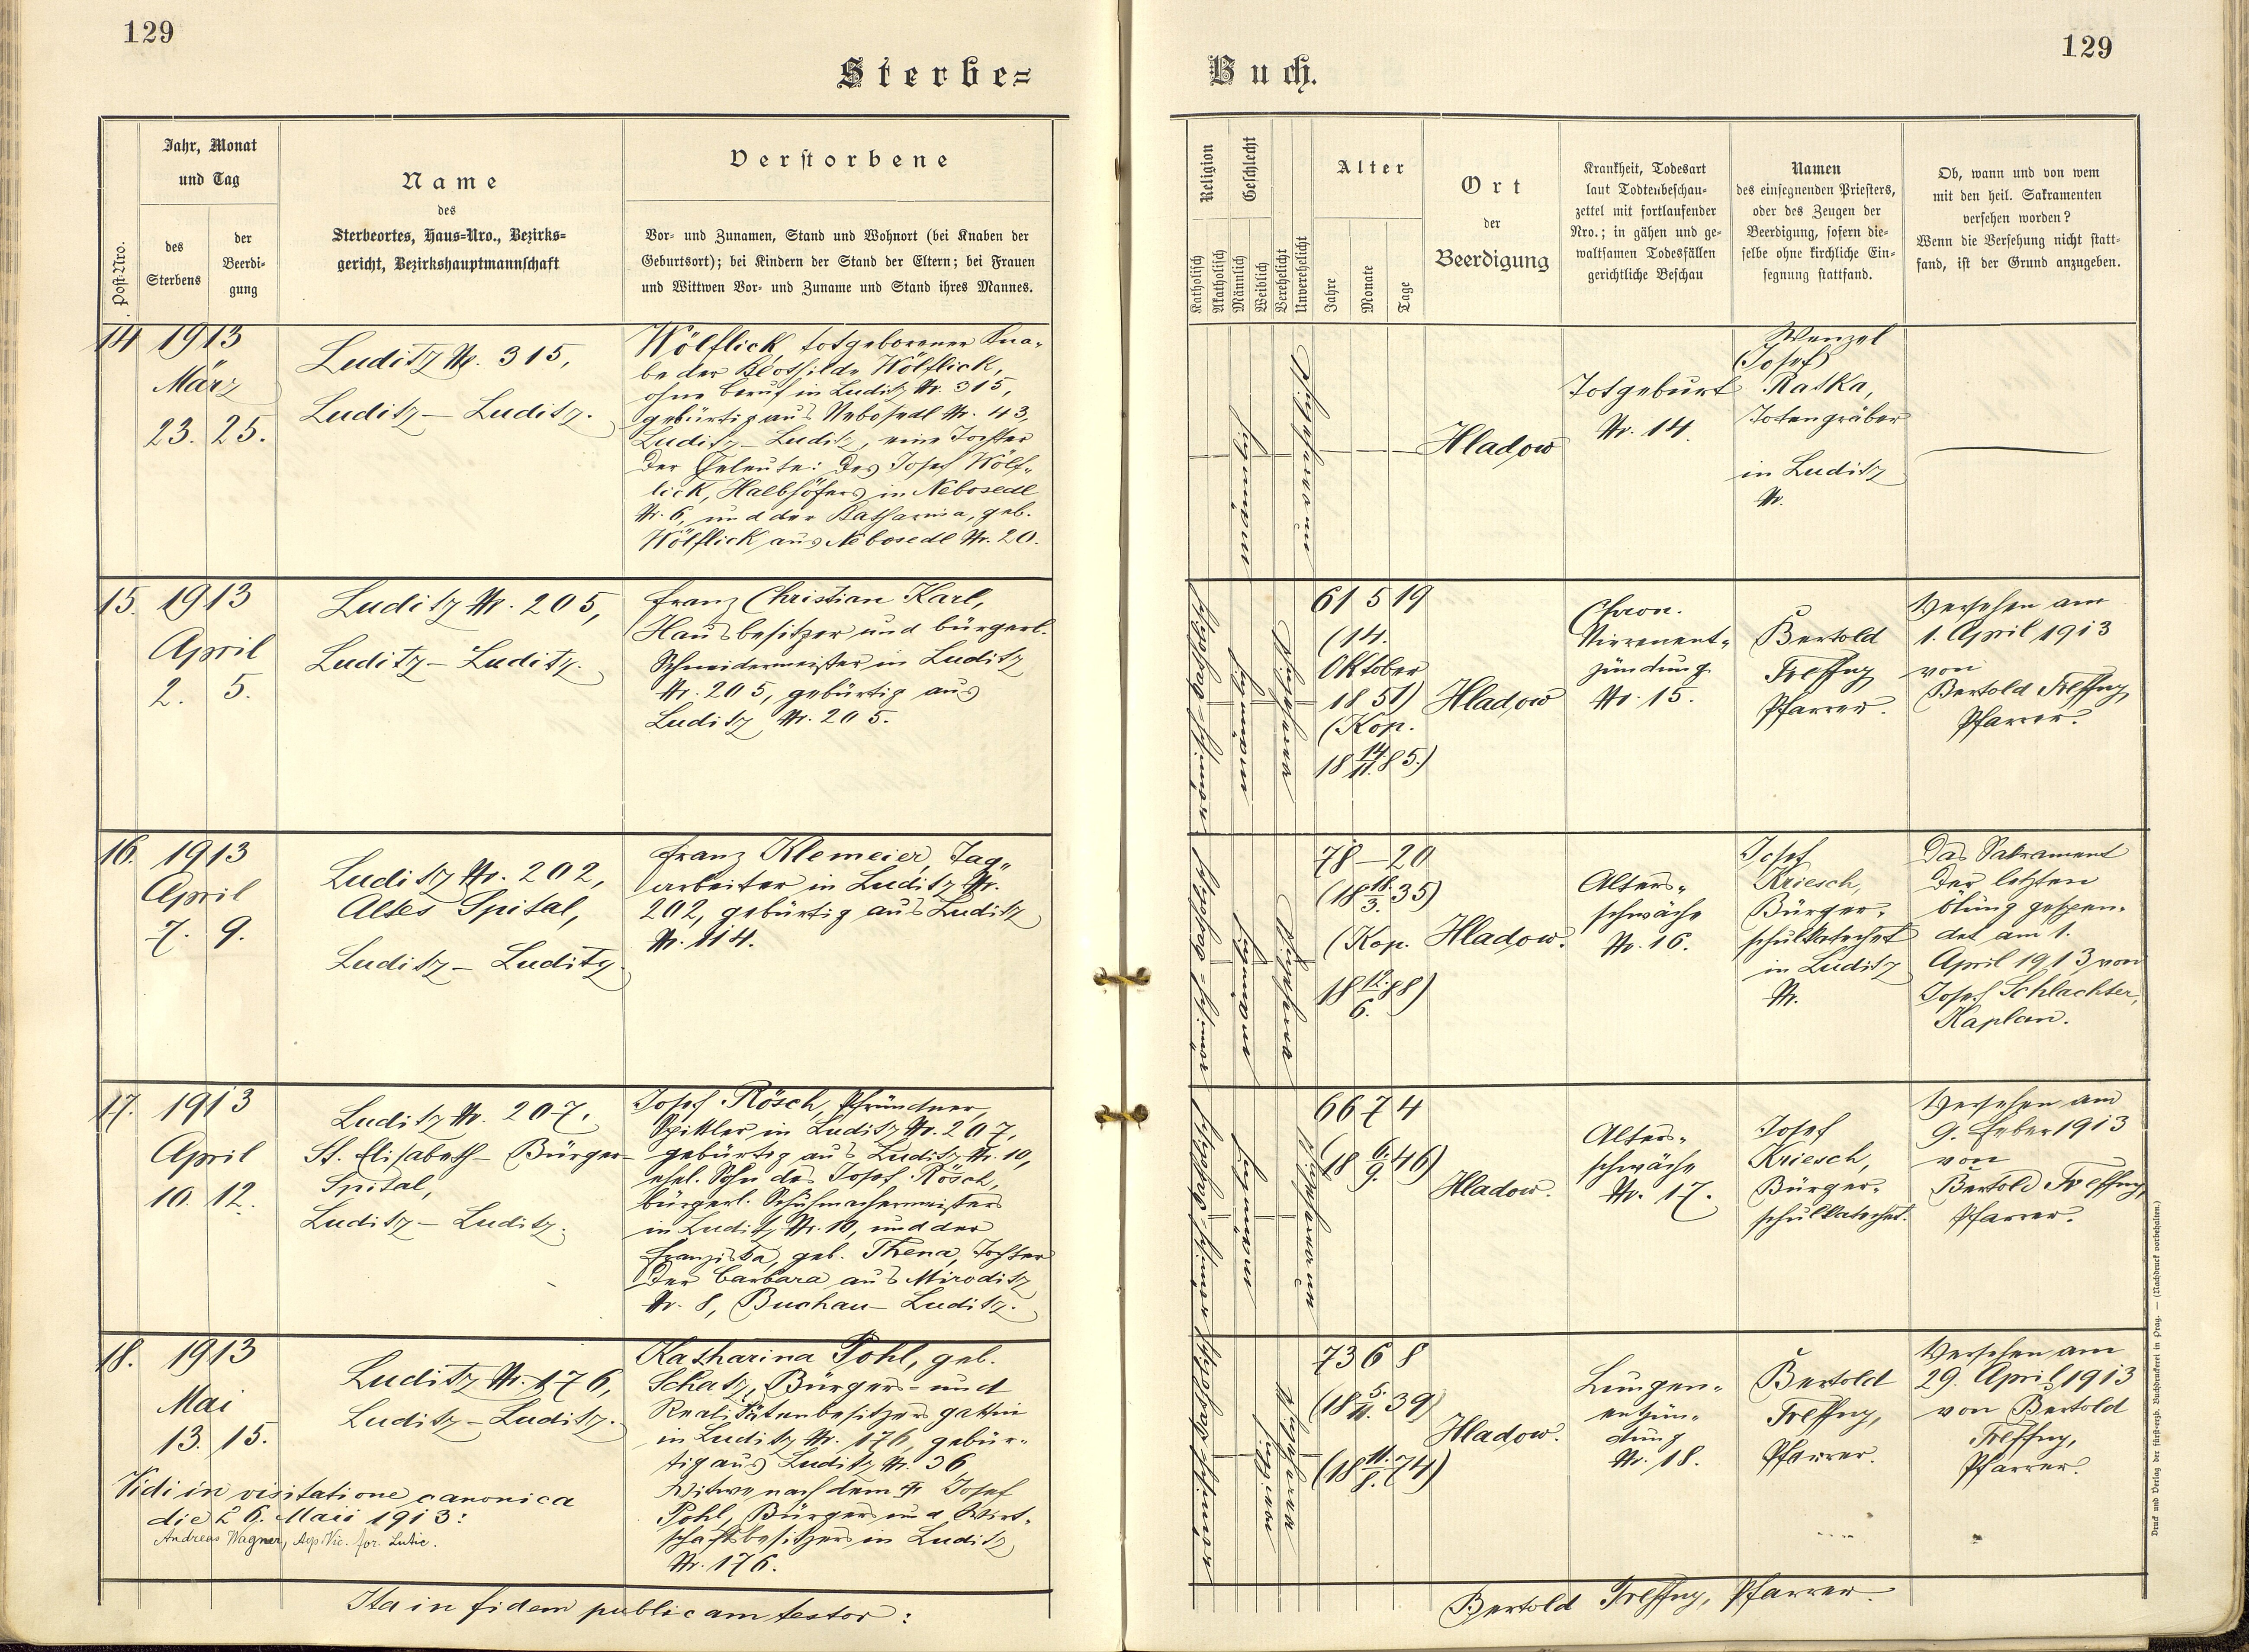 129
Sterbe=
Jahr, Monat
und Tag
Post-Nro.
des
Sterbens
der
Beerdi-
gung
Name
des
Sterbeortes, Haus-Nro., Bezirks-
gericht, Bezirkshauptmannschaft
Verstorbene
Vor- und Zunamen, Stand und Wohnort (bei Knaben der
Geburtsort); bei Kindern der Stand der Eltern; bei Frauen
und Wittwen Vor- und Zuname und Stand ihres Mannes.
14 1913
März
23. 25.
Luditz Nr. 315,
Luditz – Luditz.
Wölflick, totgeborener Kna-
be der Klothilde Wölflick,
ohne Beruf in Luditz Nr. 315,
gebürtig aus Nebosedl Nr. 43,
Luditz – Luditz, eine Tochter
der Eheleute: des Josef Wölf-
lick, Halbhöfers in Nebosedl
Nr. 6, und der Katharina, geb.
Wölflick aus Nebosedl Nr. 20.
15. 1913
April
2. 5.
Luditz Nr. 205,
Luditz – Luditz.
Franz Christian Karl,
Hausbesitzer und bürgerl.
Schneidermeister in Luditz
Nr. 205, gebürtig aus
Luditz Nr. 205.
16. 1913
April
7. 9.
Luditz Nr. 202,
Altes Spital,
Luditz – Luditz.
Franz Klemeier, Tag-
arbeiter in Luditz Nr.
202, gebürtig aus Luditz
Nr. 114.
17. 1913
April
10. 12.
Luditz Nr. 207.
St. Elisabeth – Bürger-
Spital,
Luditz – Luditz.
Josef Rösch, Pfründner,
Spittler in Luditz Nr. 207,
gebürtig aus Luditz Nr. 10,
ehel. Sohn des Josef Rösch,
bürgerl. Schuhmachermeisters
in Luditz Nr. 10, und der
Franziska, geb. Thena, Tochter
der Barbara aus Miroditz
Nr. 8, Buchau – Luditz.
18. 1913
Mai
13. 15.
Luditz Nr. 176,
Luditz – Luditz.
Katharina Pohl, geb.
Schatz, Bürgers- und
Realitätenbesitzersgattin
in Luditz Nr. 176, gebür-
tig aus Luditz Nr. 36
Witwe nach dem Josef
Pohl, Bürgers und Wirt-
schaftsbesitzers in Luditz
Nr. 176.
Vidi in visitatione canonica
die 26. Maii 1913:
Andreas Wagner, Vic. for. Lutic.
Ita in fidem publicam testor:
129
Buch.
Religion
Katholisch
Akatholisch
Geschlecht
Männlich
Weiblich
Verehelicht
Unverehelicht
Alter
Jahre
Monate
Tage
Ort
der
Beerdigung
Krankheit, Todesart
laut Todtenbeschau-
zettel mit fortlaufender
Nro.; in gähen und ge-
waltsamen Todesfällen
gerichtliche Beschau
Namen
des einsegnenden Priesters,
oder des Zeugen der
Beerdigung, sofern die-
selbe ohne kirchliche Ein-
segnung stattfand.
Ob, wann und von wem
mit den heil. Sakramenten
versehen worden?
Wenn die Versehung nicht statt-
fand, ist der Grund anzugeben.
männlich
unverehelicht
Hladow
Totgeburt
Nr. 14.
Wenzel
(Josef)
Ratka,
Totengräber
in Luditz
Nr.
römisch-katholisch
männlich
verehelicht
61 5 19
(14.
Oktober
1851)
(Kop.
18 14./11. 85.)
Hladow
Chron.
Nierenent-
zündung
Nr. 15.
Bertold
Treffny
Pfarrer.
Versehen am
1. April 1913
von
Bertold Treffny
Pfarrer.
römisch-katholisch
männlich
verehelicht
78 – 20
(18 18./3. 35)
(Kop.
18 12./6. 88)
Hladow.
Alters-
schwäche
Nr. 16.
Josef
Kriesch,
Bürger-
schulkatechet
in Luditz
Nr.
Das Sakrament
der letzten
Ölung gespen-
det am 1.
April 1913 von
Josef Schlachter,
Kaplan.
römisch-katholisch
männlich
unverehelicht
66 7 4
(18 6./9. 46)
Hladow.
Alters-
schwäche
Nr. 17.
Josef
Kriesch,
Bürger-
schulkatechet.
Versehen am
9. Feber 1913
von
Bertold Treffny,
Pfarrer.
römisch-katholisch
weiblich
verehelicht
73 6 8
(18 5./11. 39)
(18 11./8. 74)
Hladow.
Lungen-
entzün-
dung
Nr. 18.
Bertold
Treffny,
Pfarrer.
Versehen am
29. April 1913
von Bertold
Treffny,
Pfarrer.
Bertold Treffny, Pfarrer.
Druck und Verlag der fürsterzb. Buchdruckerei in Prag. — (Nachdruck vorbehalten.)